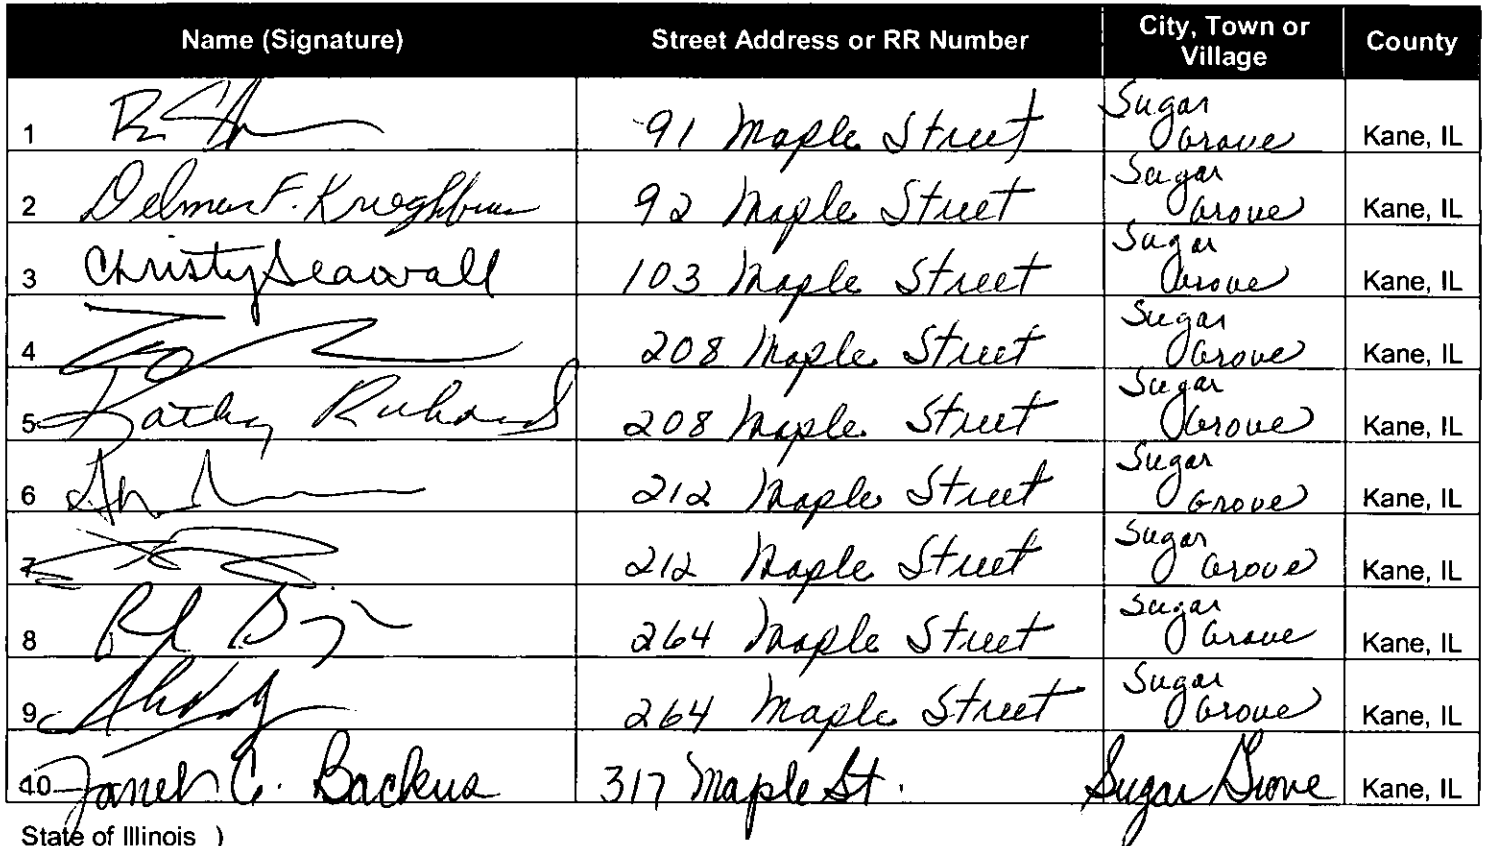 Name (Signature) Street Address or RR Number City, Town or Village County
1 91 Maple Street Sugar Grove Kane, IL
2 Delmar F. 92 Maple Street Sugar Grove Kane, IL
3 Christy Seawall 103 Maple Street Sugar Grove Kane, IL
4 208 Maple Street Sugar Grove Kane, IL
5 Kathy Richards 208 Maple Street Sugar Grove Kane, IL
6 212 Maple Street Sugar Grove Kane, IL
7 212 Maple Street Sugar Grove Kane, IL
8 264 Maple Street Sugar Grove Kane, IL
9 264 Maple Street Sugar Grove Kane, IL
10 Janet C. Backus 317 Maple St. Sugar Grove Kane, IL
State of Illinois )